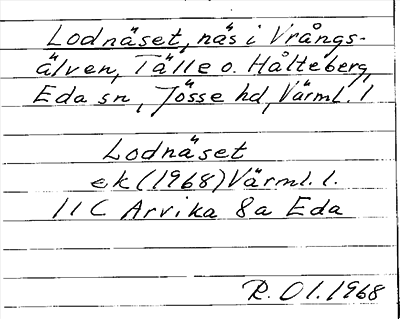 Lodnäset, näs i Vrångs-
älven, Tälle o. Hålteberg,
Eda sn, Jösse hd, Värml. l
Lodnäset
ek (1968) Värml. l.
11C Arvika 8a Eda
R. 01.1968